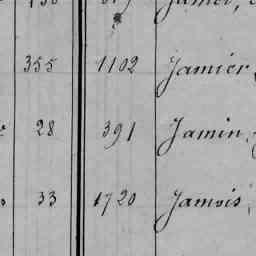 355 1102 Jamier,
28 391 Jamin,
33 1720 Jamois,